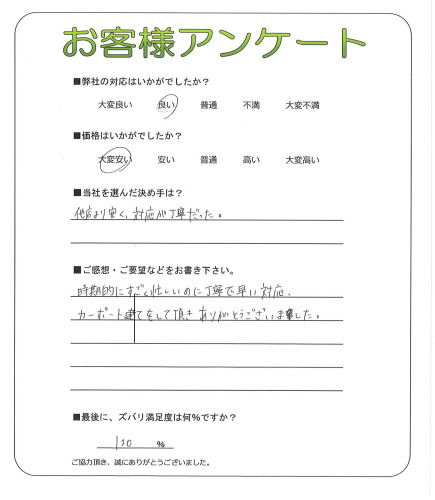 お客様アンケート
■弊社の対応はいかがでしたか?
大変良い 良い 普通 不満 大変不満
■価格はいかがでしたか?
大変安い 安い 普通 高い 大変高い
■当社を選んだ決め手は?
他店より安く、対応が丁寧だった。
■ご感想・ご要望などをお書き下さい。
時期的にすごく忙しいのに丁寧で早い対応、
カーポート建てをして頂きありがとうございました。
■最後に、ズバリ満足度は何%ですか?
110 %
ご協力頂き、誠にありがとうございました。